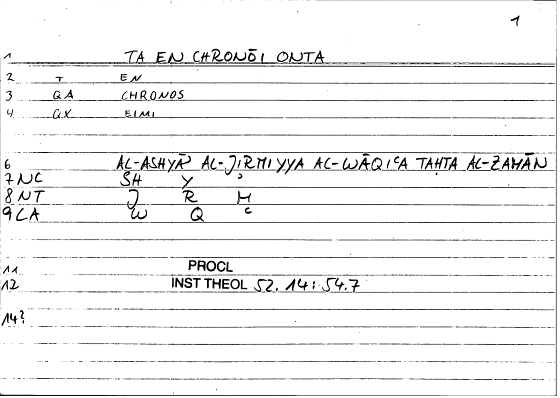 1
1 TA EN CHRONŌI ONTA
2 T EN
3 QA CHRONOS
4 QX EIMI
6 AL-ASHYĀʾ AL-JIRMIYYA AL-WĀQIʿA TAḤTA AL-ZAMĀN
7 NC SH Y ʾ
8 NT J R M
9 CA W Q ʿ
11 PROCL
12 INST THEOL 52. 14: 54.7
14?